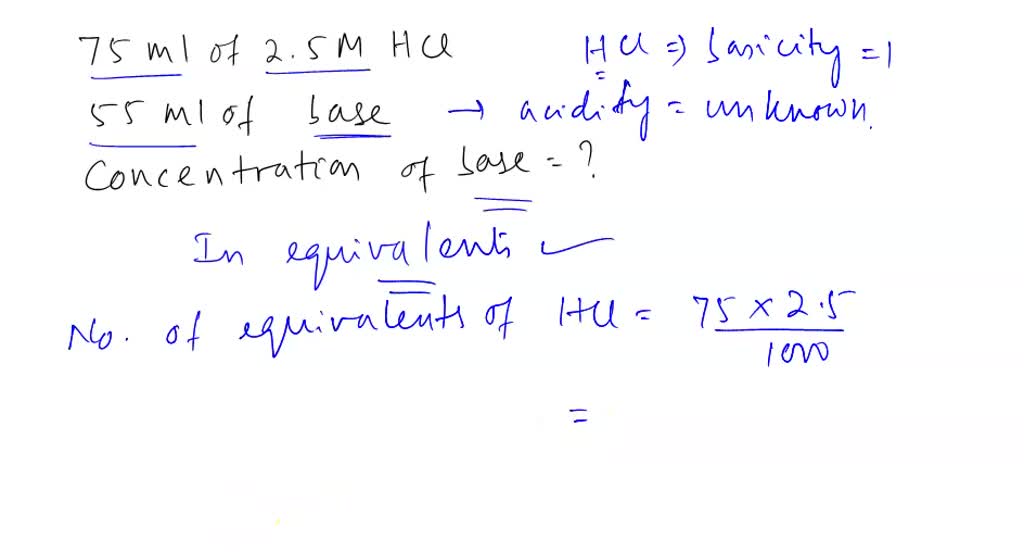 75 ml of 2.5M HCl
HCl ⇒ basicity = 1
55 ml of base → acidity = unknown.
Concentration of base = ?
In equivalents
No. of equivalents of HCl = 75 × 2.5 / 1000
=